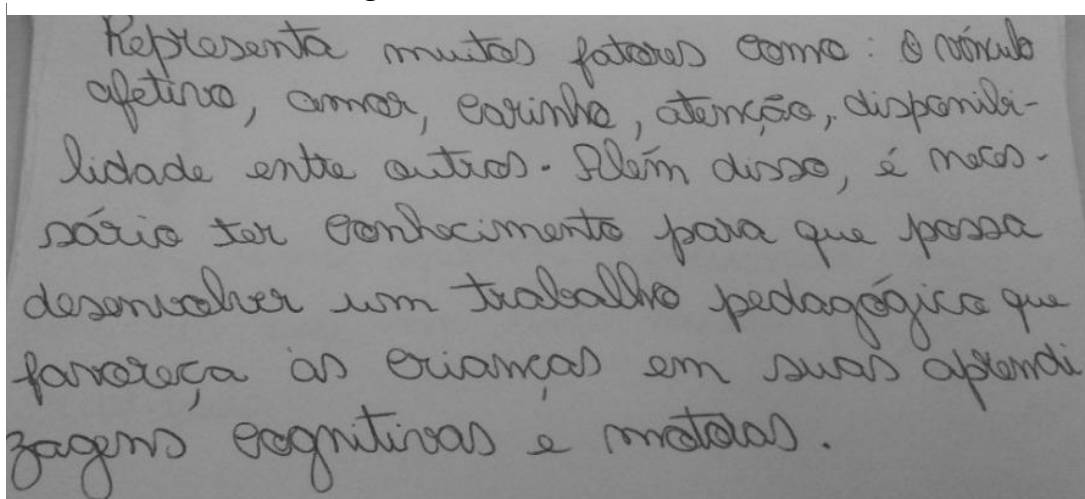 Representa muitos fatores como: o vínculo
afetivo, amor, carinho, atenção, disponibi-
lidade entre outros. Além disso, é neces-
sário ter conhecimento para que possa
desenvolver um trabalho pedagógico que
favoreça as crianças em suas aprendi
zagens cognitivas e motoras.